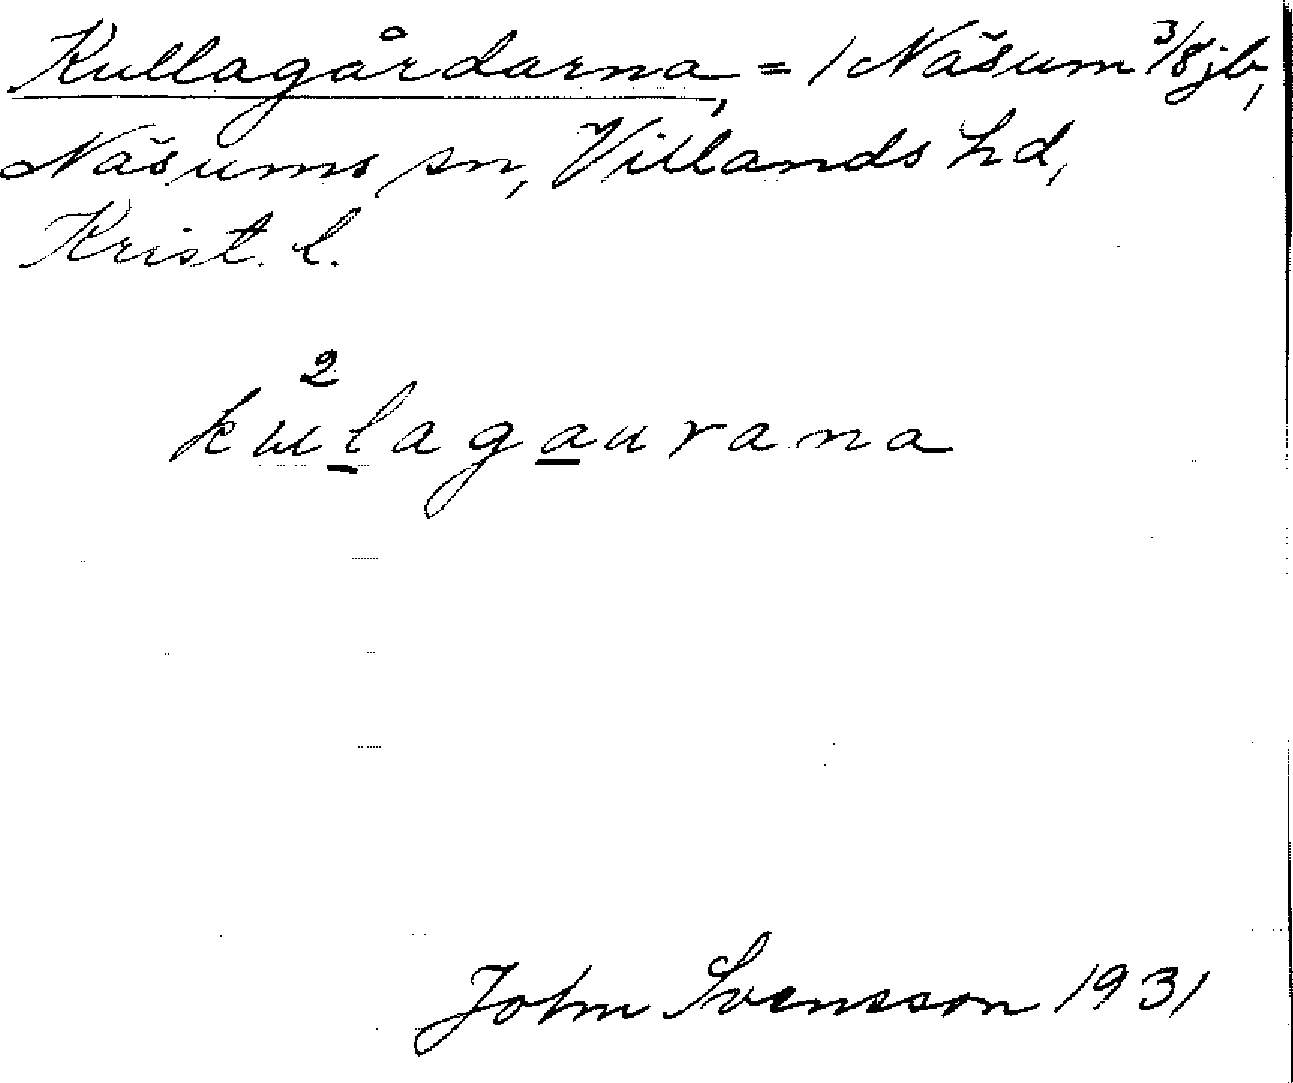 Kullagårdarna, = 1 Näsum 3/8 jb,
Näsums sn, Villands hd,
Krist. l.
2
kulagaurana
John Svensson 1931